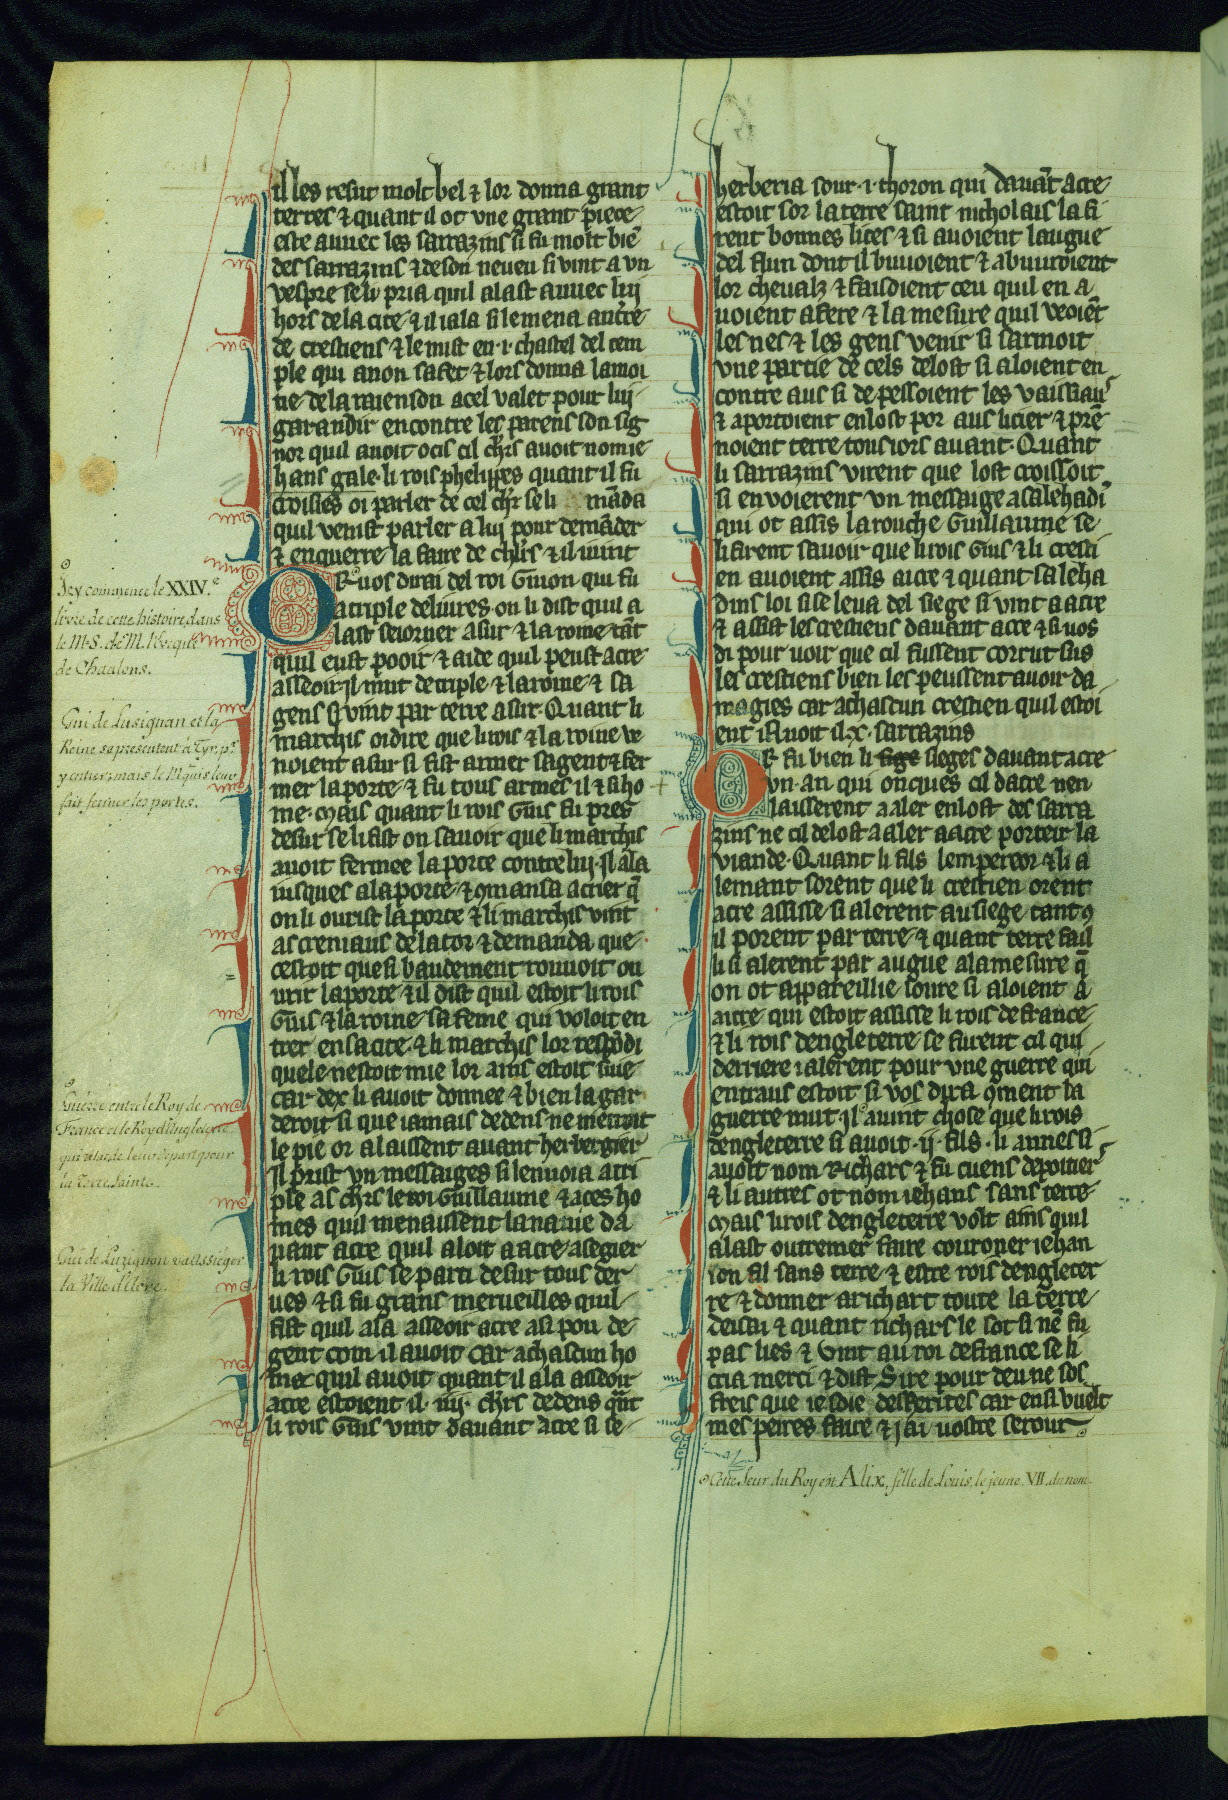 il les resut molt bel ⁊ lor donna grant
terres ⁊ quant il ot vne grant piece
este auuec les sarrazins si fu molt biē
des sarrazins ⁊ de son neueu si vint a vn
vespre se li pria quil alast auuec luj
hors de la cite ⁊ il i ala si lemena en t̄re
de crestiens ⁊ le mist en ·i· chastel del tem
ple qui a non safet ⁊ lors donna la moi
tie de la raienson a cel valet pour luj
garandir encontre les parens son sig
nor quil auoit ocis cil chr̄s auoit nom ie
hans gale · li rois phelippes quant il fu
croisies oi parler de cel chr̄ se li māda
quil venist parler a luj pour demāder
⁊ enquerre la faire de chr̄s ⁊ il i uint
OR uos dirai del roi Guion qui fu
a triple deliures · on li dist quil a
last seiorner a sur ⁊ la roine tāt
quil eust pooir ⁊ aide quil peust acre
asseoir · Il mut de triple ⁊ la roine ⁊ sa
gens ⁊ vint par terre a sur · Quant li
marchis oi dire que li rois ⁊ la roine ve
noient a sur si fist armer sa gent ⁊ fer
mer la porte ⁊ fu tous armes il ⁊ si ho
me · Mais quant li rois Guis fu pres
de sur se li fist on sauoir que li marchis
auoit fermee la porte contre luj · Il ala
iusques a la porte ⁊ ꝯmansa a crier q̄
on li ourist la porte ⁊ li marchis vint
as creniaus de la tor ⁊ demanda que
cestoit que si baudement rouuoit ou
urir la porte ⁊ il dist quil estoit li rois
Guis ⁊ la roine sa feme qui voloit en
trer en sa cite ⁊ li marchis lor respōdi
quele nestoit mie lor ains estoit siue
car dex li auoit donnee ⁊ bien la gar
deroit si que iamais dedens ne metroit
le pie or alaissent auant herbergier
Il prist vn messaiges si lenuoia a tri
ple as chr̄s le roi Guillaume ⁊ a ces ho
mes quil menaissent la nauie da
uant acre quil aloit a acre asegier
li rois Guis se parti de sur tous der
ues ⁊ si fu grans merueilles quil
fist quil ala asseoir acre a si pou de
gent com il auoit car a chascun ho
me quil auoit quant il ala asseoir
acre estoient il · iiij · chr̄s dedens qūt
li rois Guis vint dauant acre si se
herberia sour · i · thoron qui dauāt acre
estoit sor la terre saint nicholais la fi
rent bonnes lices ⁊ si auoient laugue
del flun dont il buuoient ⁊ abuuroient
lor cheualz ⁊ faisoient ceu quil en a
uoient a fere ⁊ la mesure quil veoiēt
les nes ⁊ les gens venir si sarmoit
vne partie de cels delost si aloient en
contre aus si depessoient les vaissiaus
⁊ aportoient en lost por aus licier ⁊ prē
noient terre tous iors auant · Quant
li sarrazins virent que lost croissoit
si envoierent vn messaige a salehadī
qui ot assis la rouche Guillaume se
li firent sauoir que li rois Guis ⁊ li cresti
en auoient assis aicre ⁊ quant saleha
dins loi si se leua del siege si vint a acre
⁊ assist les crestiens dauant acre ⁊ si uos
di pour uoir que cil fussent corrut sus
les crestiens bien les peussent auoir da
magies car a chascun crestien qui estoi
ent i auoit il · x · sarrazins
OR fu bien li sieges dauant acre
vn · an qui onques cil dacre nen
lausserent a aler en lost des sarra
zins ne cil delost a aler a acre porteir la
viande · Quant li fils lempereor ⁊ li a
lemant sorent que li crestien orent
acre assisse si alerent au siege tant ꝯ
il porent par terre ⁊ quant terre fail
li si alerent par augue a la mesure q̄
on ot appareillie soure si aloient a
aicre qui estoit assisse li rois de france
⁊ li rois dengleterre se furent cil qui
derriere i alerent pour vne guerre qui
entraus estoit si vos dira ꝯment la
guerre mut · Il auint chose que li rois
dengleterre si auoit · ij · fils · li annes si
auoit nom Richars ⁊ fu cuens de poitiers
⁊ li autres ot nom iehans sans terre
Mais li rois dengleterre volt ains quil
alast outremer faire couroner iehan
ion fil sans terre ⁊ estre rois dengleter
re ⁊ donner a richart toute la terre
deisai ⁊ quant richars le sot si nē fu
pas lies ⁊ Vint au roi de france se li
cria merci ⁊ dist Sire pour deu ne sos
freis que ie soie desherites car ensi vuelt
mes peires faire ⁊ j ai vostre serour
Icy commence le XXIV.e
livre de cette histoire, dans
le MS. de M. l'évêque
de Chaalons.
Gui de Lusignan et la
Reine se présentent à Tyr, pr.
y entrer; mais le Mquis leur
fait fermer les portes.
Guerre entre le Roy de
France et le Roy d'Angleterre
qui retarde leur départ pour
la Terre Sainte.
Gui de Luzignan va assiéger
la Ville d'Acre.
Cette Seur du Roy est Alix, fille de Louis le jeune VII. du nom.